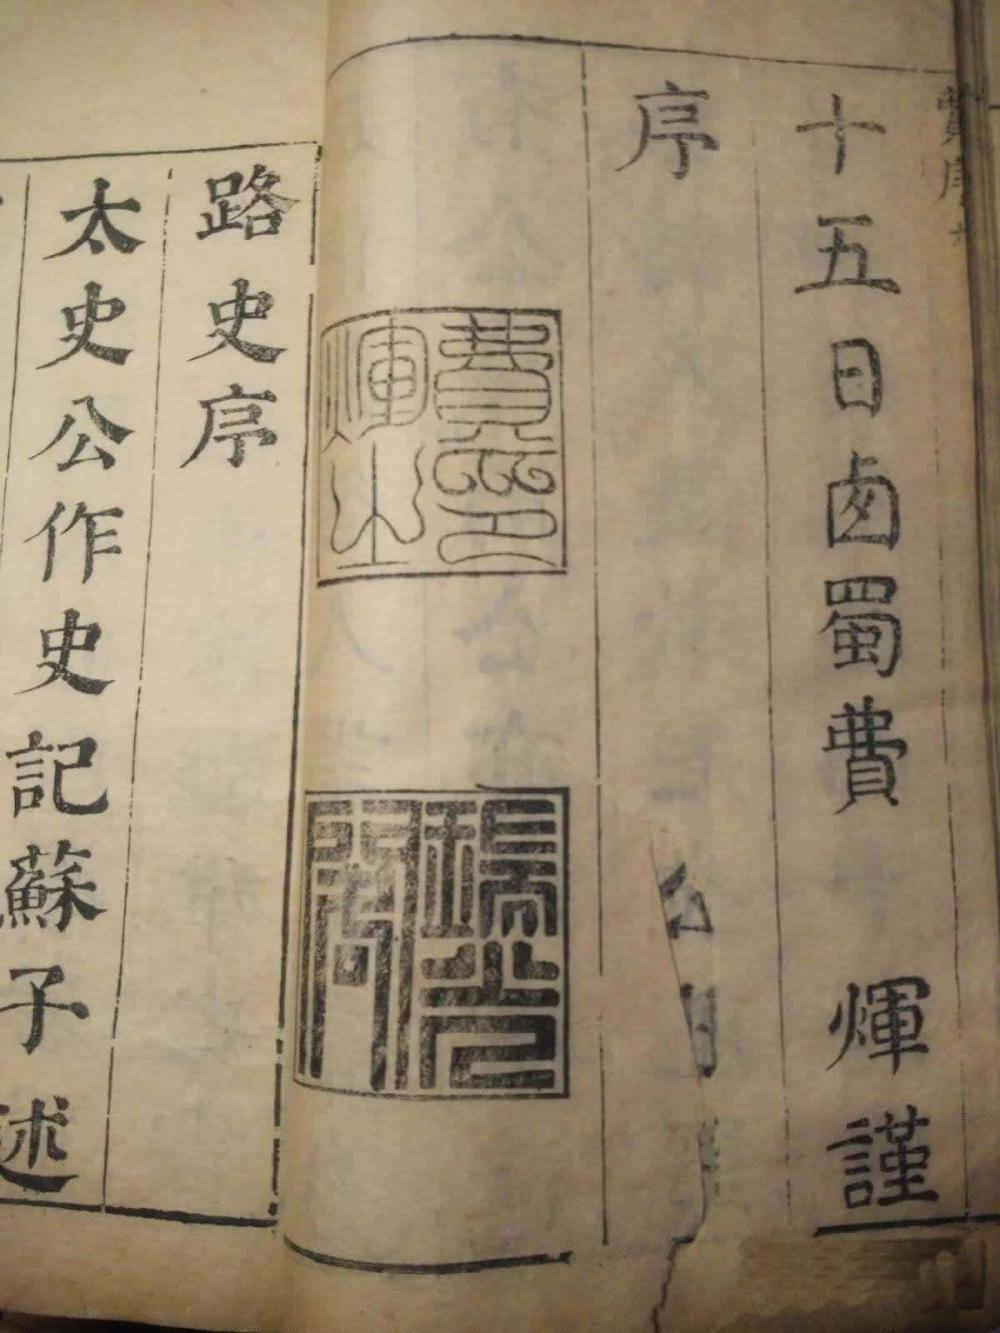 費序
十五日卥蜀費 煇謹
序
費印
煇之
瑞光
閣
路史序
太史公作史記蘇子述